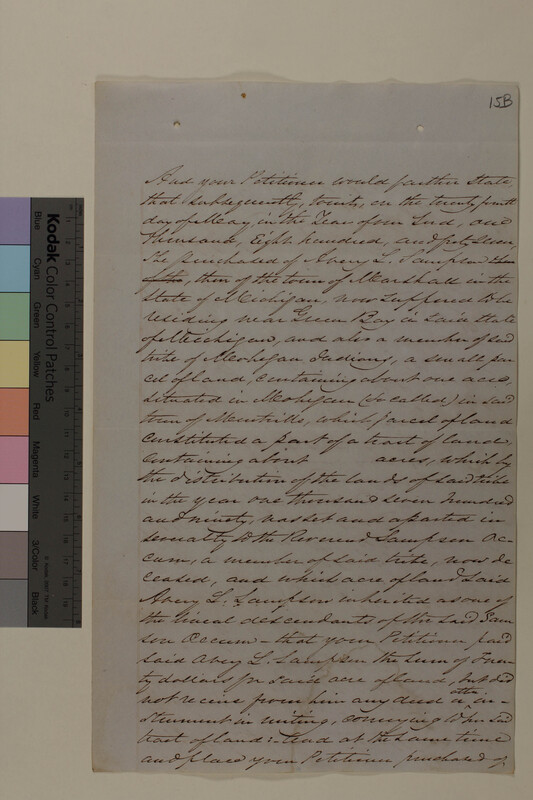 15B
And your Petitioner would further State,
that subsequently, towit, on the twenty
day of May, in the Year of our Lord, one
thousand, Eight hundred, and
She purchased of Avery L. Sampson
then of the town of Marshall in the
State of Michigan, now supposed to be
residing near Green Bay in said State
of Michigan, and also a member of said
tribe of Mohegan Indians, a small par
cel of land, containing about one acre,
situated in Mohegan (so called) in said
town of Montville, which parcel of land
constituted a part of a tract of land,
containing about acres, which by
the distribution of the lands of said tribe
in the year one thousand seven hundred
and ninety, was set and aparted in
severalty to the Reverend Sampson Oc-
cum, a member of said tribe, now de
ceased, and which acre of land said
Avery L. Sampson inherited as one of
the lineal descendants of the said Sam
son Occum - that your Petitioner paid
said Avery L. Sampson the sum of Twen
ty dollars for said acre of land, but did
not receive from him any deed or other in-
strument in writing, conveying to her said
tract of land :- And at the same time
and place your Petitioner purchased of
Kodak Color Control Patches
Blue Cyan Green Yellow Red Magenta White 3/Color Black